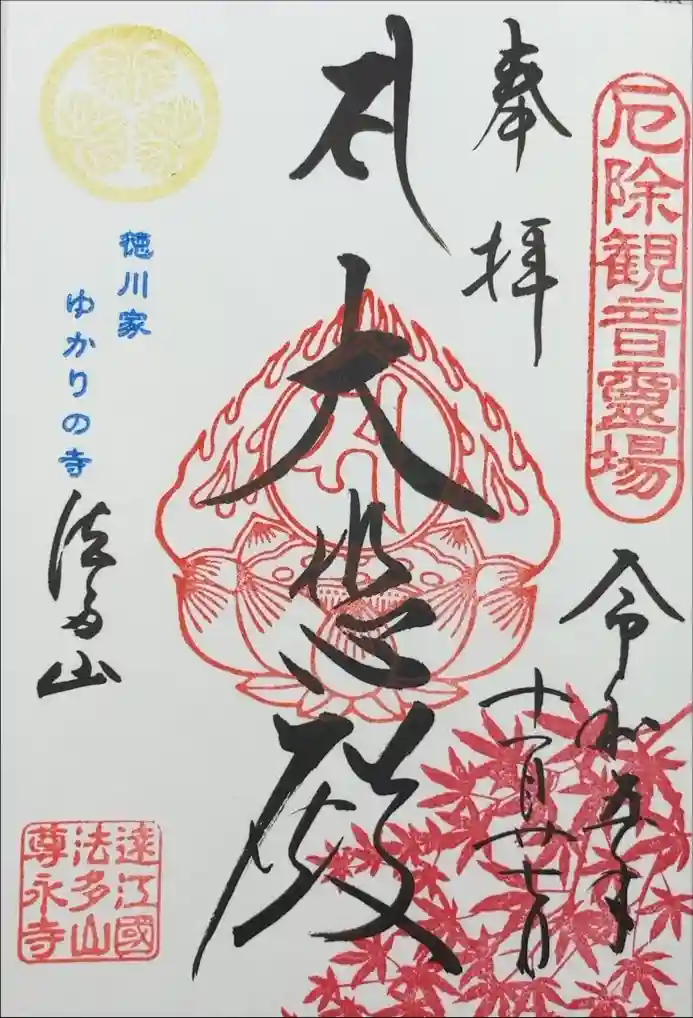 厄除観音霊場
奉拝
令和五年
十一月廿七日
大悲殿
徳川家
ゆかりの寺
法多山
遠江國
法多山
尊永寺